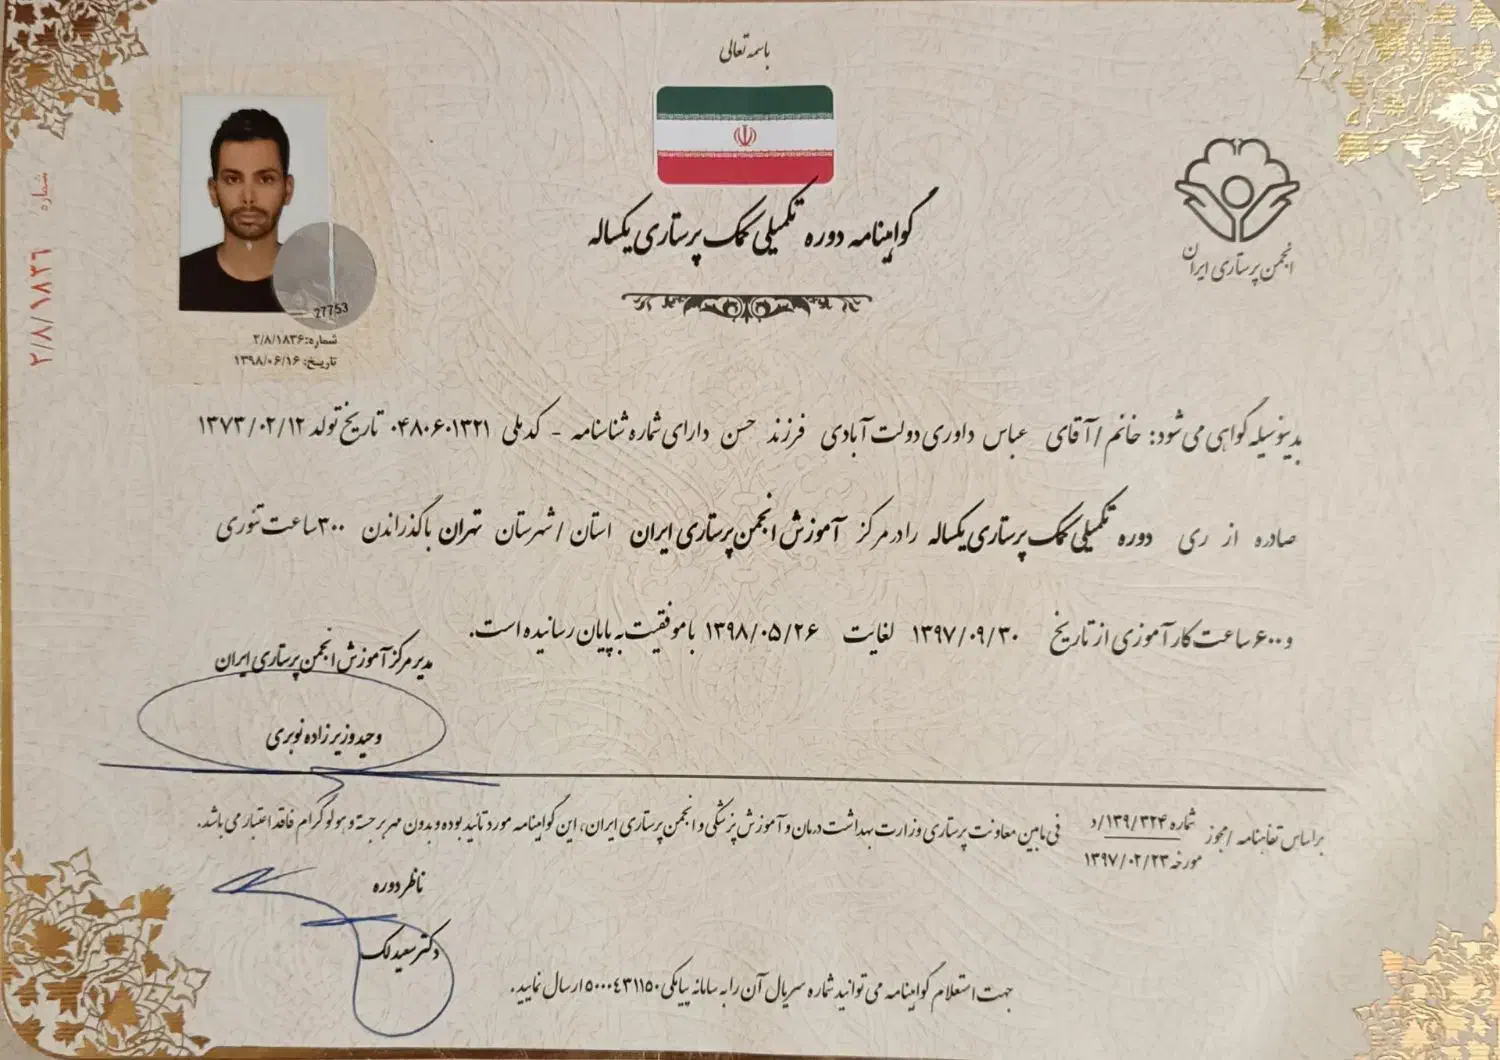 باسمه تعالی
گواهینامه دوره تکمیلی کمک پرستاری یکساله
انجمن پرستاری ایران
شماره ۲/۸/۱۸۳۶
27753
شماره: ۲/۸/۱۸۳۶
تاریخ: ۱۳۹۸/۰۶/۱۶
بدینوسیله گواهی می شود: خانم / آقای عباس داوری دولت آبادی فرزند حسن دارای شماره شناسنامه - کد ملی ۰۴۸۰۶۰۱۳۲۱ تاریخ تولد ۱۳۷۳/۰۲/۱۲
صادره از ری دوره تکمیلی کمک پرستاری یکساله را در مرکز آموزش انجمن پرستاری ایران استان / شهرستان تهران با گذراندن ۳۰۰ ساعت تئوری
و ۶۰۰ ساعت کارآموزی از تاریخ ۱۳۹۷/۰۹/۳۰ لغایت ۱۳۹۸/۰۵/۲۶ با موفقیت به پایان رسانیده است.
مدیر مرکز آموزش انجمن پرستاری ایران
وحید وزیر زاده نوبری
براساس تفاهنامه / مجوز شماره ۱۳۹/۳۲۴/د مورخه ۱۳۹۷/۰۲/۲۳ فی مابین معاونت پرستاری وزارت بهداشت درمان و آموزش پزشکی و انجمن پرستاری ایران، این گواهینامه مورد تائید بوده و بدون مهر برجسته و هولوگرام فاقد اعتبار می باشد.
ناظر دوره
دکتر سعید لک
جهت استعلام گواهینامه می توانید شماره سریال آن را به سامانه پیامکی ۵۰۰۰۴۳۱۱۵۰ ارسال نمایید.